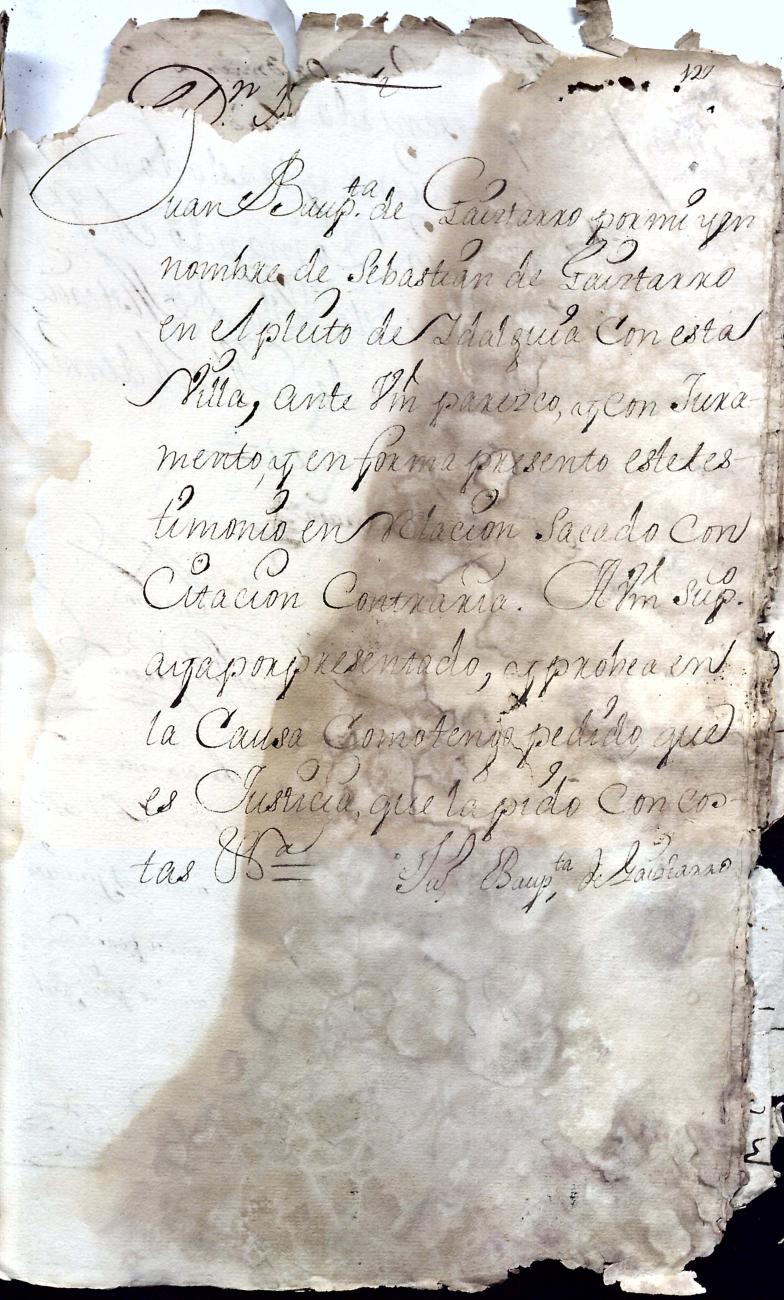 127
Dn
Juan Baup.ta de Gaiztarro por mi y en
nombre de Sebastian de Gaiztarro
en el pleito de Idalguia Con esta
Villa, ante Vm parezco, y con Jura-
mento, y en forma presento este tes-
timonio en Relacion Sacado Con
Citacion Contraria. A Vm sup.co
aya por presentado, y probea en
la Causa Como tengo pedido, que
es Justicia, que la pido Con cos-
tas &a =
Jun Baup.ta de Gaiztarro